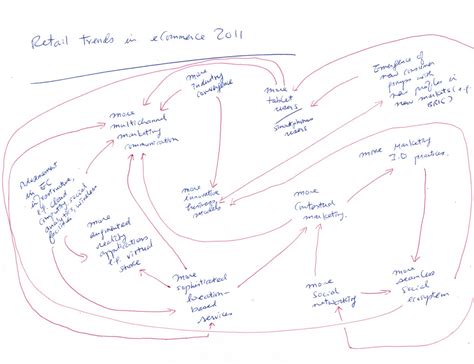 Retail trends in eCommerce 2011
more
industry
convergence
more
tablet
users
smartphone
users
Emergence of
new consumer
groups with
new profiles in
new markets (e.g.
BRIC)
more
multichannel
marketing
communication
more Marketing
3.0 practices.
in EC
infrastructure,
e.g. cloud
computing, social
analytics, wireless
facilities
more
innovative
business
models
more
contextual
marketing.
more
augmented
reality
applications
e.g. virtual
store
more
sophisticated
location-
based
services
more
social
networking
more
seamless
social
ecosystem